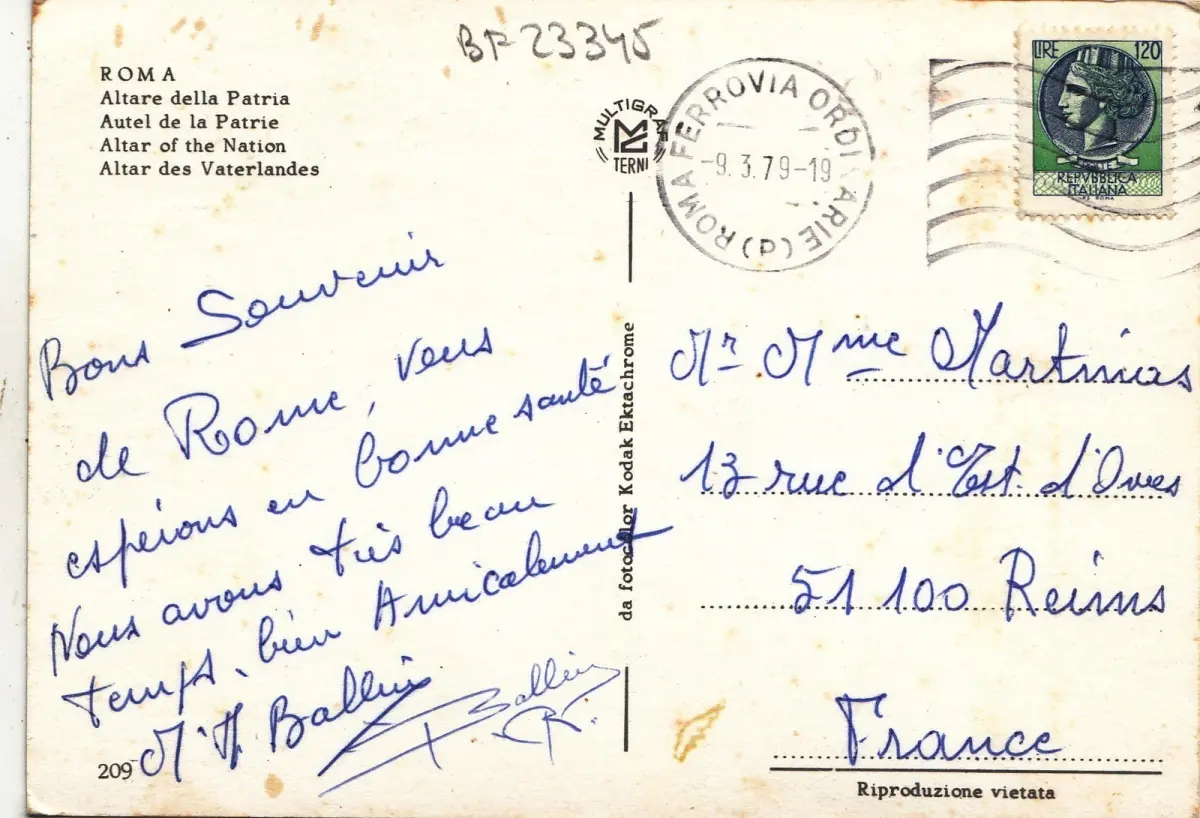 BF 23345
ROMA
Altare della Patria
Autel de la Patrie
Altar of the Nation
Altar des Vaterlandes
MULTIGRAF
TERNI
ROMA FERROVIA ORDINARIE (P)
-9.3.79-19
LIRE 120
REPVBBLICA
ITALIANA
Bons Souvenir
de Rome, vous
espérons en bonne santé
Nous avons très beau
temps. bien Amicalement
M Ballini
Ballini
209
da fotocolor Kodak Ektachrome
Mr Mme Martinus
13 rue d'Est d'Oves
51 100 Reims
France
Riproduzione vietata